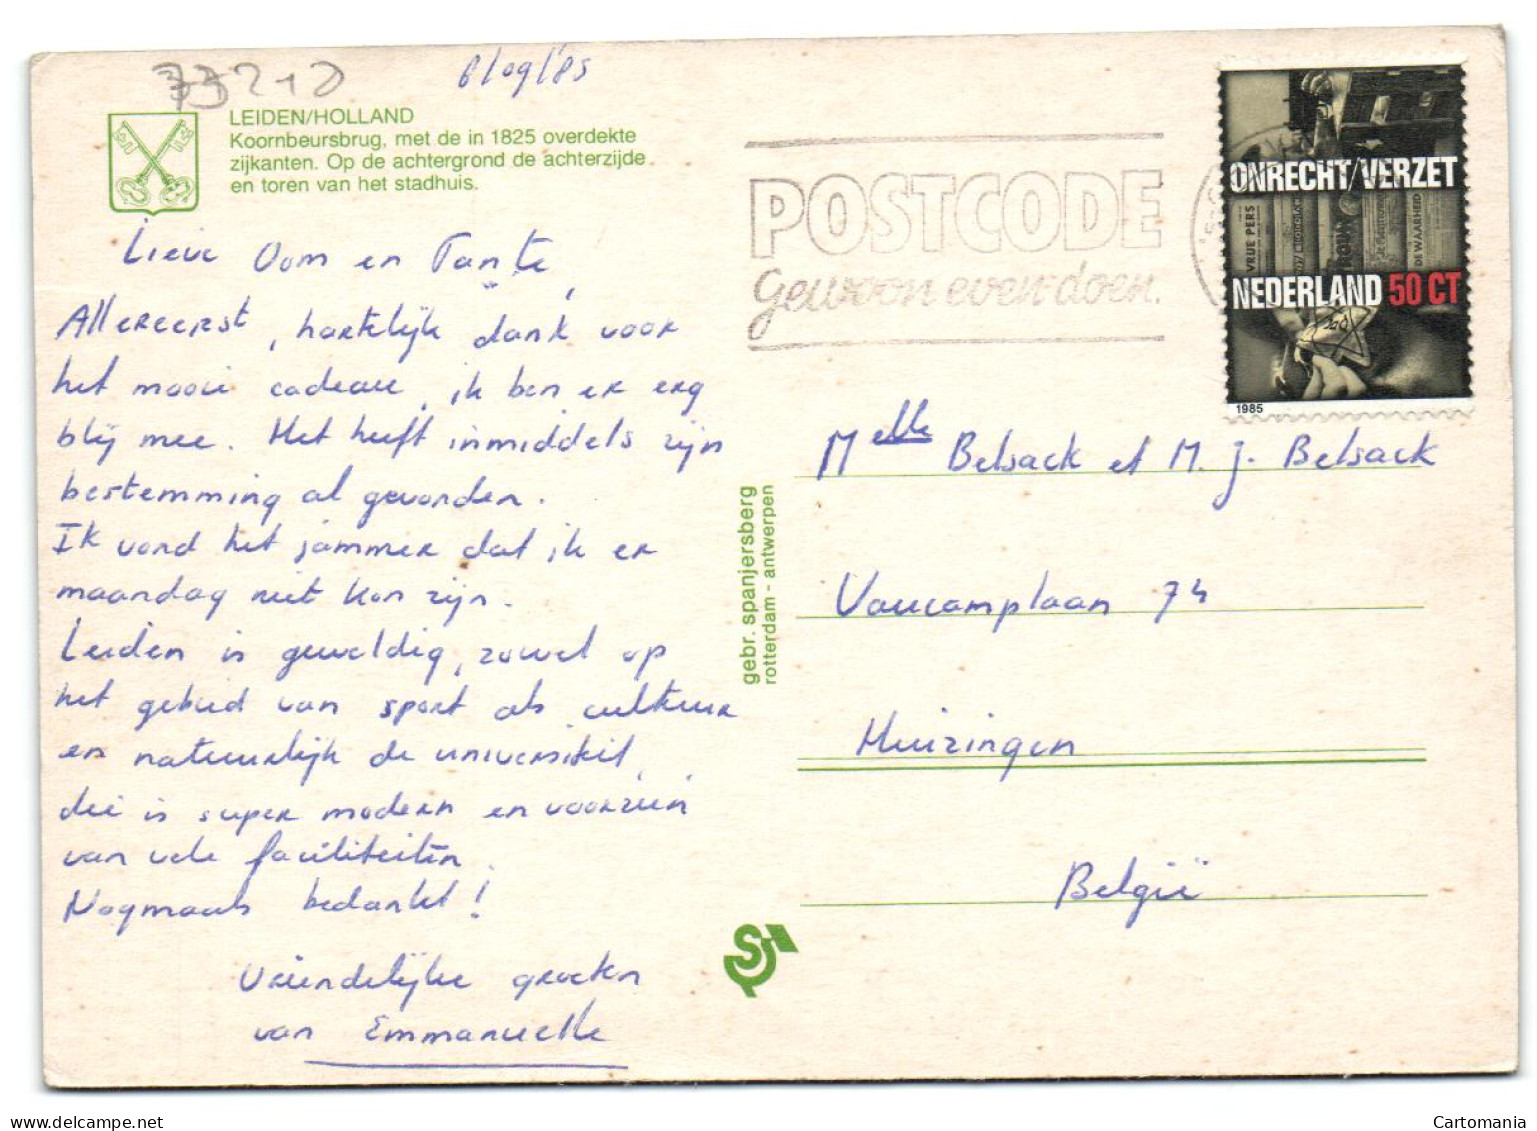 6/09/'85
LEIDEN/HOLLAND
Koornbeursbrug, met de in 1825 overdekte
zijkanten. Op de achtergrond de achterzijde
en toren van het stadhuis.
Lieve Oom en Tante,
Allereerst, hartelijk dank voor
het mooie cadeau, ik ben er erg
blij mee. Het heeft inmiddels zijn
bestemming al gevonden.
Ik vond het jammer dat ik er
maandag niet kon zijn.
Leiden is geweldig, zowel op
het gebied van sport als cultuur
en natuurlijk de universiteit,
die is super modern en voorzien
van vele faciliteiten.
Nogmaals bedankt!
Vriendelijke groeten
van Emmanuelle
gebr. spanjersberg
rotterdam - antwerpen
POSTCODE
Gewoon even doen.
ONRECHT/VERZET
VRIJE PERS
DE WAARHEID
NEDERLAND 50 CT
1985
Melle Belsack et M. J. Belsack
Vaucamplaan 74
Huizingen
België
delcampe.net
Cartomania